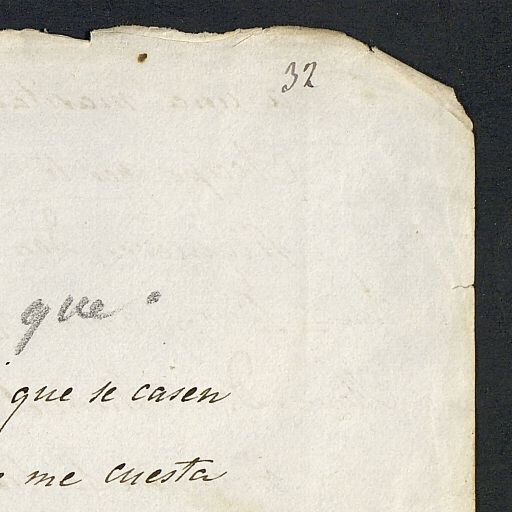 32
que
que se casen
me cuesta